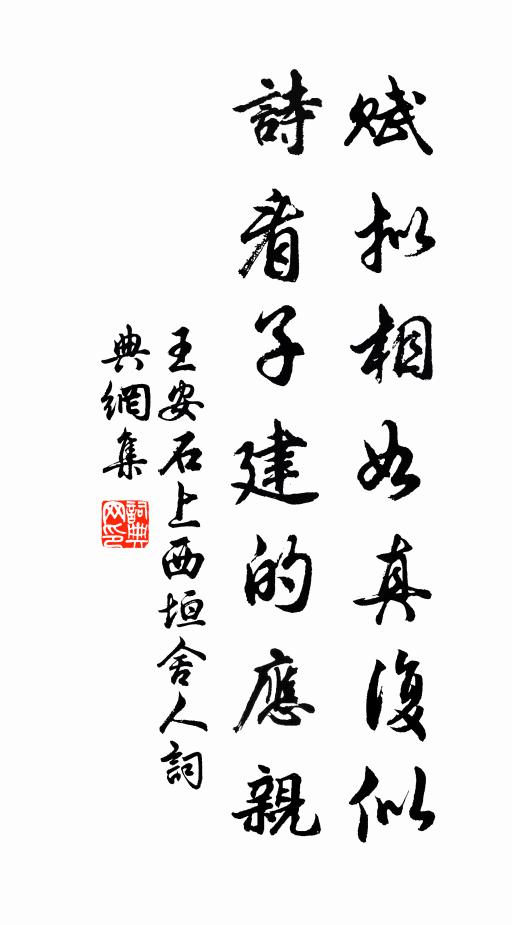 赋拟相如真復似
詩看子建的應親
王安石上西垣舍人詞
典網集
詞典网印